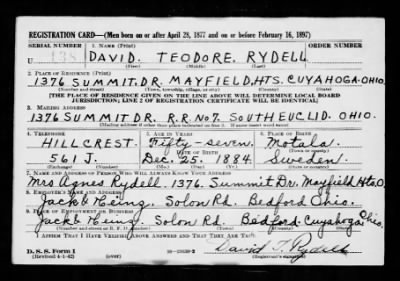 REGISTRATION CARD—(Men born on or after April 28, 1877 and on or before February 16, 1897)
SERIAL NUMBER 1. NAME (Print) ORDER NUMBER
U 138 DAVID. TEODORE. RYDELL
(First) (Middle) (Last)
2. PLACE OF RESIDENCE (Print)
1376 SUMMIT. DR. MAYFIELD. HTS. CUYAHOGA. OHIO.
(Number and street) (Town, township, village, or city) (County) (State)
[THE PLACE OF RESIDENCE GIVEN ON THE LINE ABOVE WILL DETERMINE LOCAL BOARD
JURISDICTION; LINE 2 OF REGISTRATION CERTIFICATE WILL BE IDENTICAL]
3. MAILING ADDRESS
1376 SUMMIT DR. R.R. No 7. SOUTH EUCLID. OHIO.
[Mailing address if other than place indicated on line 2. If same insert word same]
4. TELEPHONE 5. AGE IN YEARS 6. PLACE OF BIRTH
HILLCREST. Fifty-seven. Motala.
DATE OF BIRTH (Town or county)
561 J. Dec. 25. 1884. Sweden.
(Exchange) (Number) (Mo.) (Day) (Yr.) (State or country)
7. NAME AND ADDRESS OF PERSON WHO WILL ALWAYS KNOW YOUR ADDRESS
Mrs Agnes Rydell 1376. Summit Dr. Mayfield Hts. O.
8. EMPLOYER'S NAME AND ADDRESS
Jack & Heinz. Solon Rd. Bedford Ohio.
9. PLACE OF EMPLOYMENT OR BUSINESS
Jack & Heinz. Solon Rd. Bedford. Cuyahoga Ohio.
(Number and street or R. F. D. number) (Town) (County) (State)
I AFFIRM THAT I HAVE VERIFIED ABOVE ANSWERS AND THAT THEY ARE TRUE.
David T. Rydell
D. S. S. Form 1
(Revised 4-1-42) (over) (Registrant's signature)